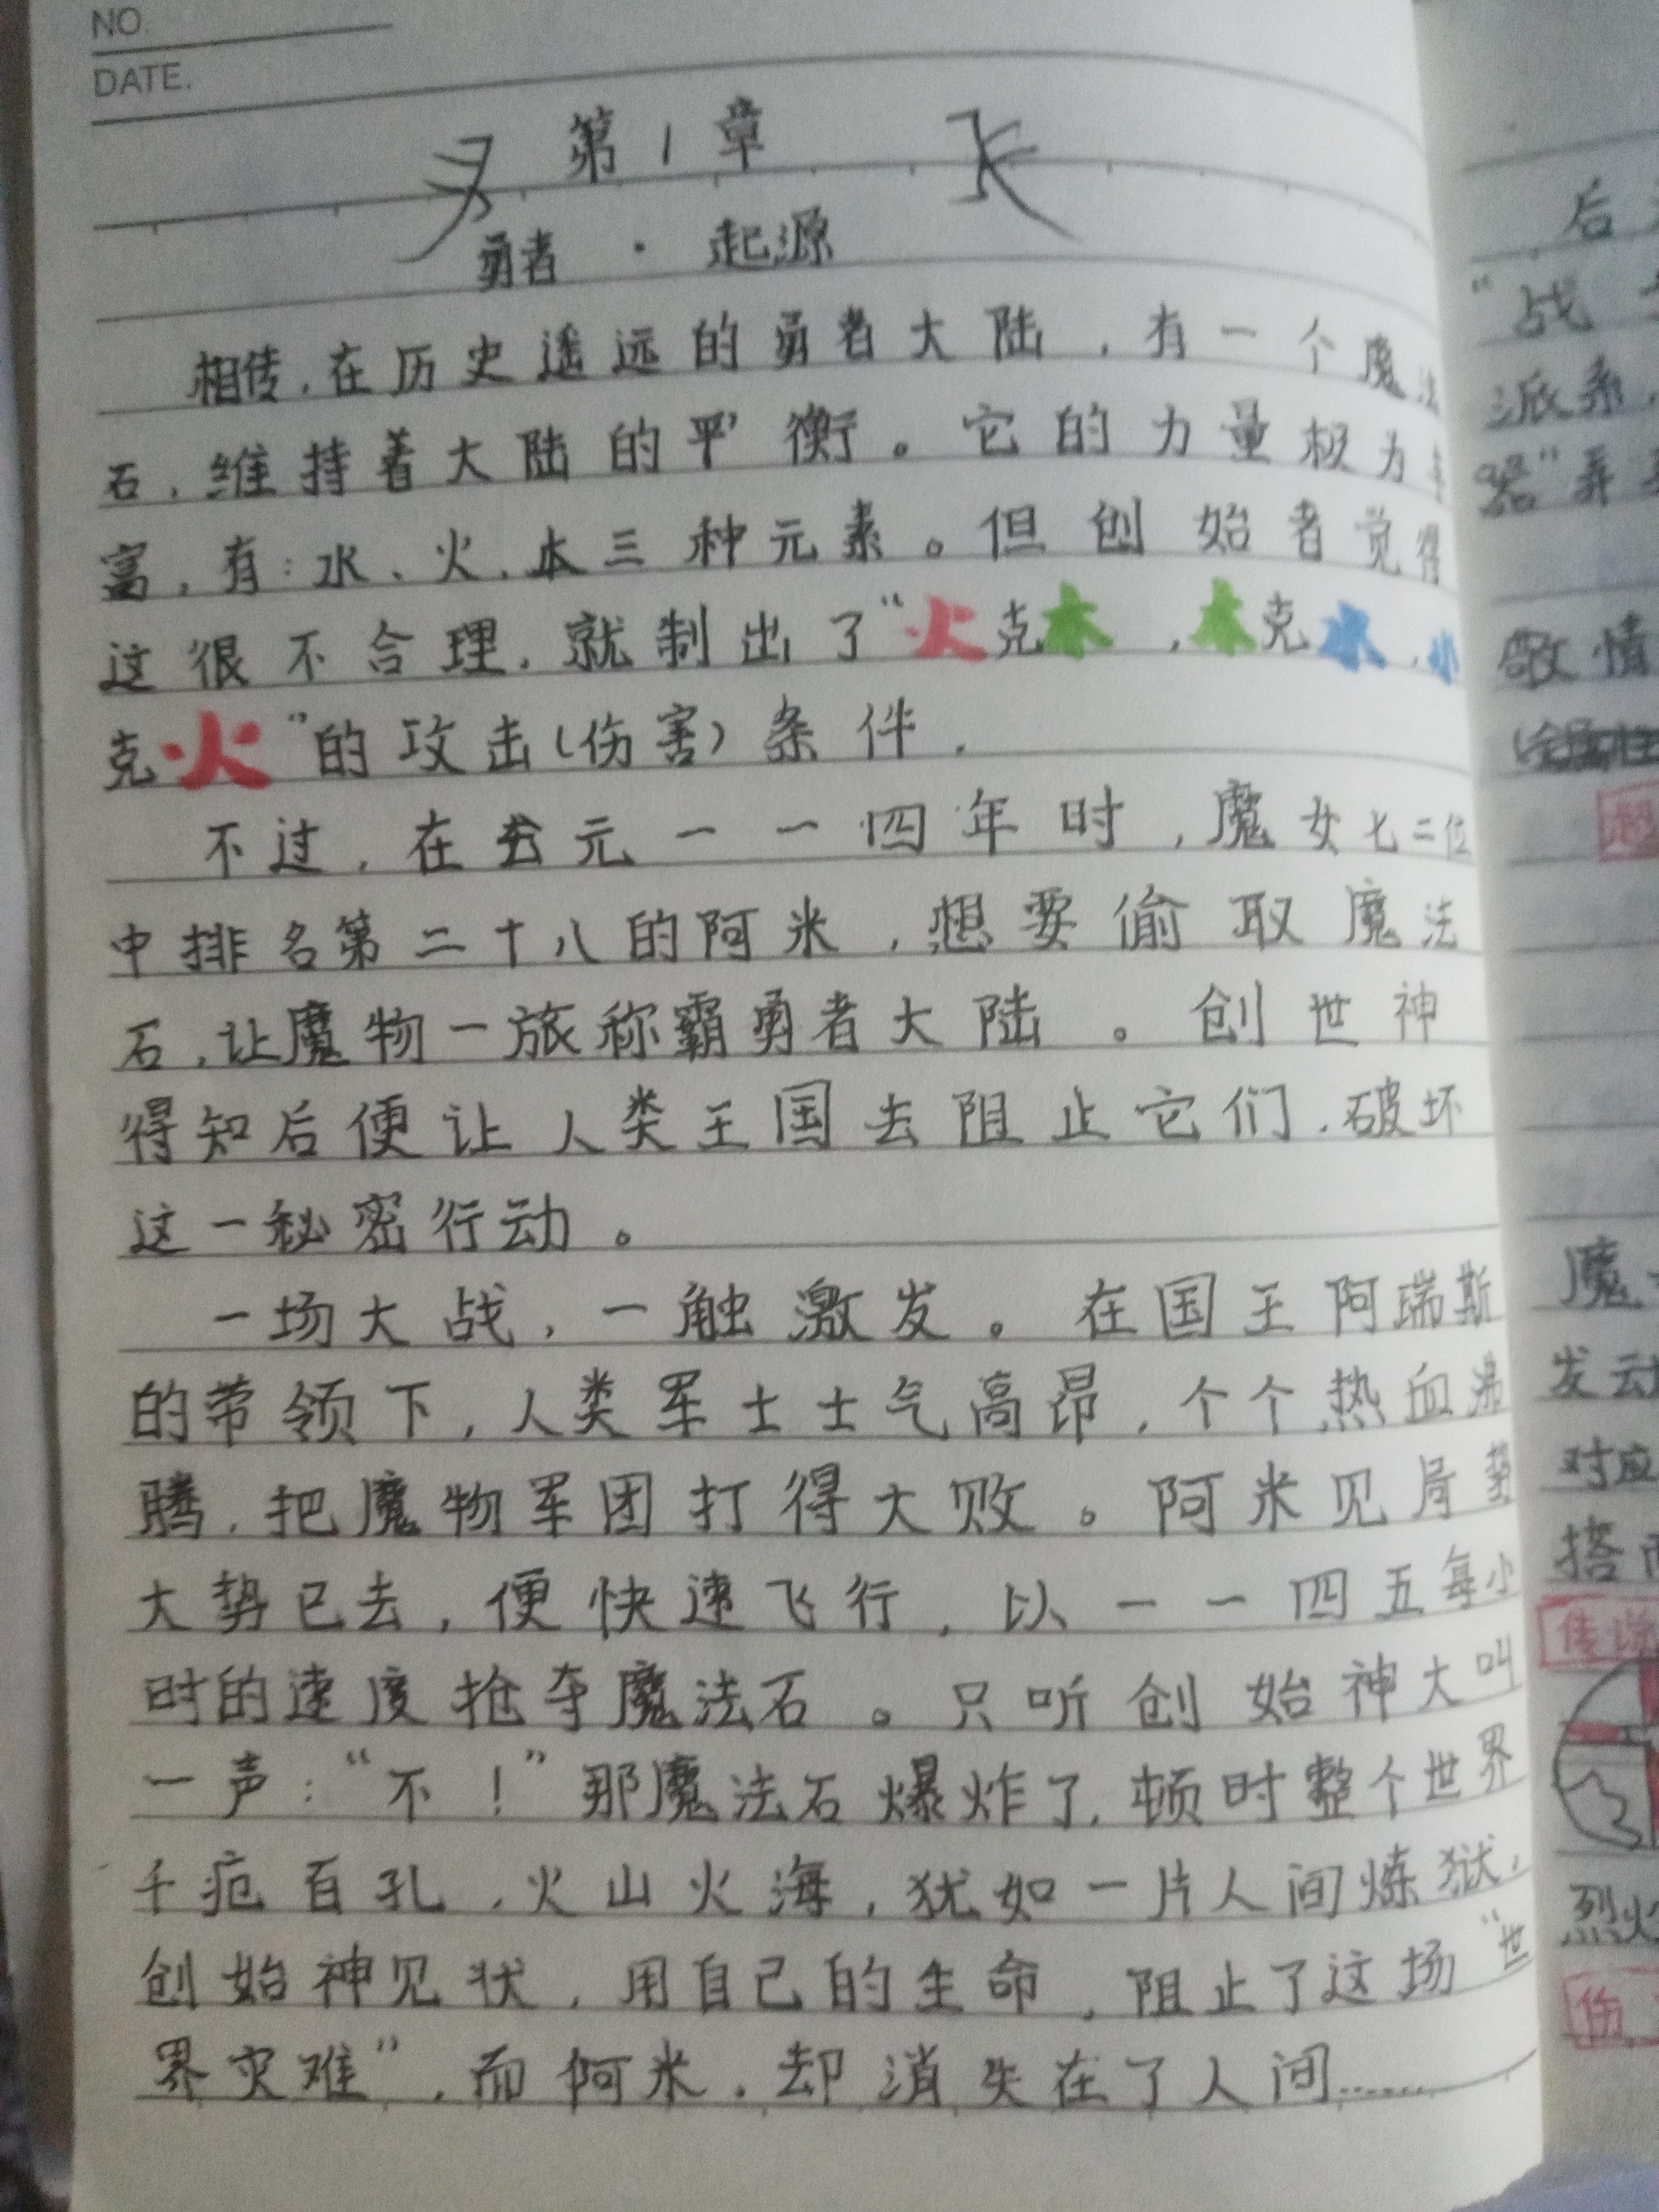 NO.
DATE.
第1章
勇者·起源
相传,在历史遥远的勇者大陆,有一个魔法
石,维持着大陆的平衡。它的力量极为丰
富,有:水、火、木三种元素。但创始者觉得
这很不合理,就制出了“火克木,木克水,水
克火”的攻击(伤害)条件.
不过,在公元一一四年时,魔女七二位
中排名第二十八的阿米,想要偷取魔法
石,让魔物一旅称霸勇者大陆。创世神
得知后便让人类王国去阻止它们,破坏
这一秘密行动。
一场大战,一触激发。在国王阿瑞斯
的带领下,人类军士士气高昂,个个热血沸
腾,把魔物军团打得大败。阿米见局势
大势已去,便快速飞行,以一一四五每小
时的速度抢夺魔法石。只听创始神大叫
一声:“不!”那魔法石爆炸了,顿时整个世界
千疮百孔,火山火海,犹如一片人间炼狱,
创始神见状,用自己的生命,阻止了这场“世
界灾难”,而阿米,却消失在了人间……
后
“战
派系,
器”弄
敌情
魔
发动
对应
搭
传说
烈火
伤